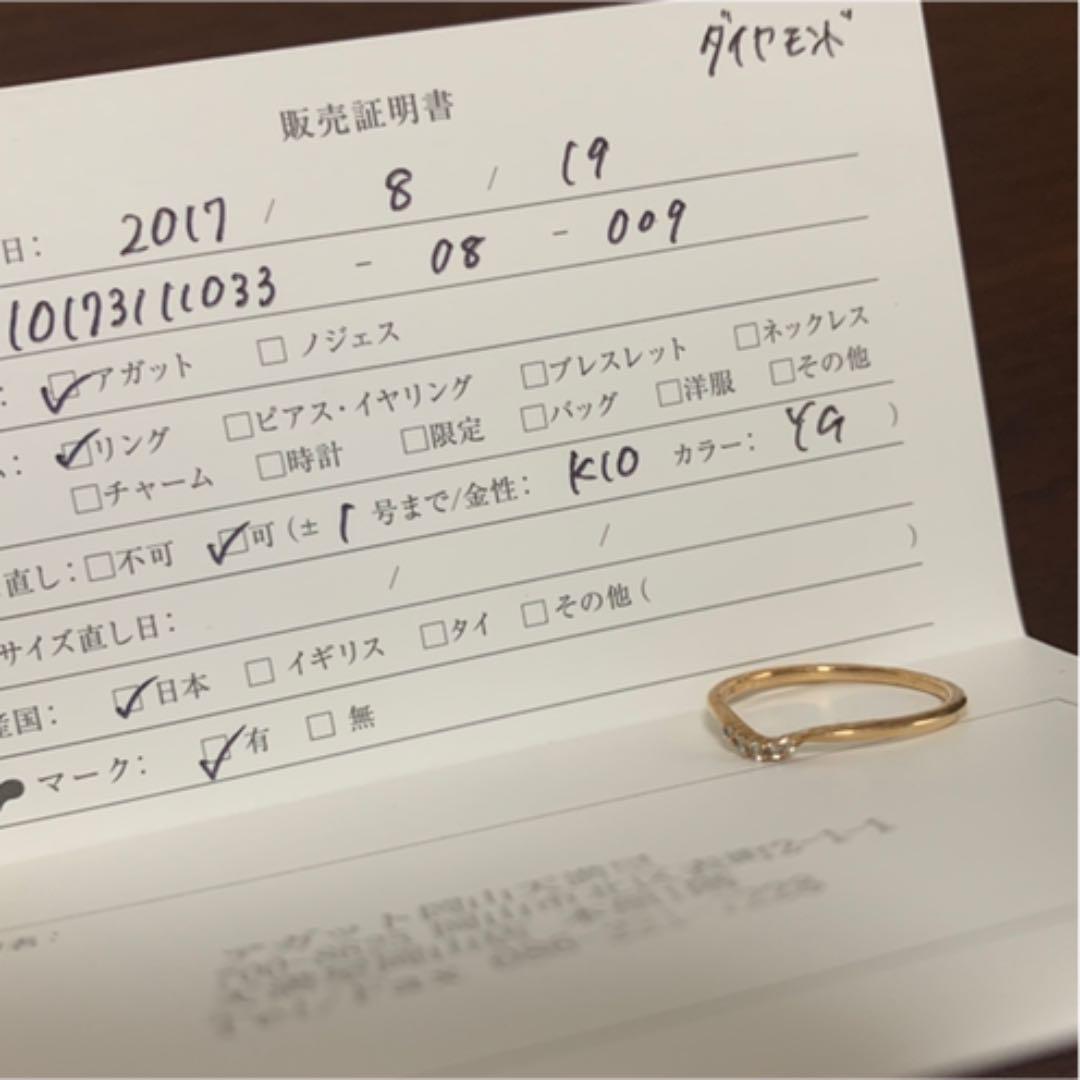 ダイヤモンド
販売証明書
日: 2017 / 8 / 19
10173111033 - 08 - 009
: ☑アガット □ノジェス
ム: ☑リング □ピアス・イヤリング □ブレスレット □ネックレス
□チャーム □時計 □限定 □バッグ □洋服 □その他
直し: □不可 ☑可 (± 1 号まで/金性: K10 カラー: YG )
サイズ直し日: / /
産国: ☑日本 □イギリス □タイ □その他 ( )
マーク: ☑有 □無